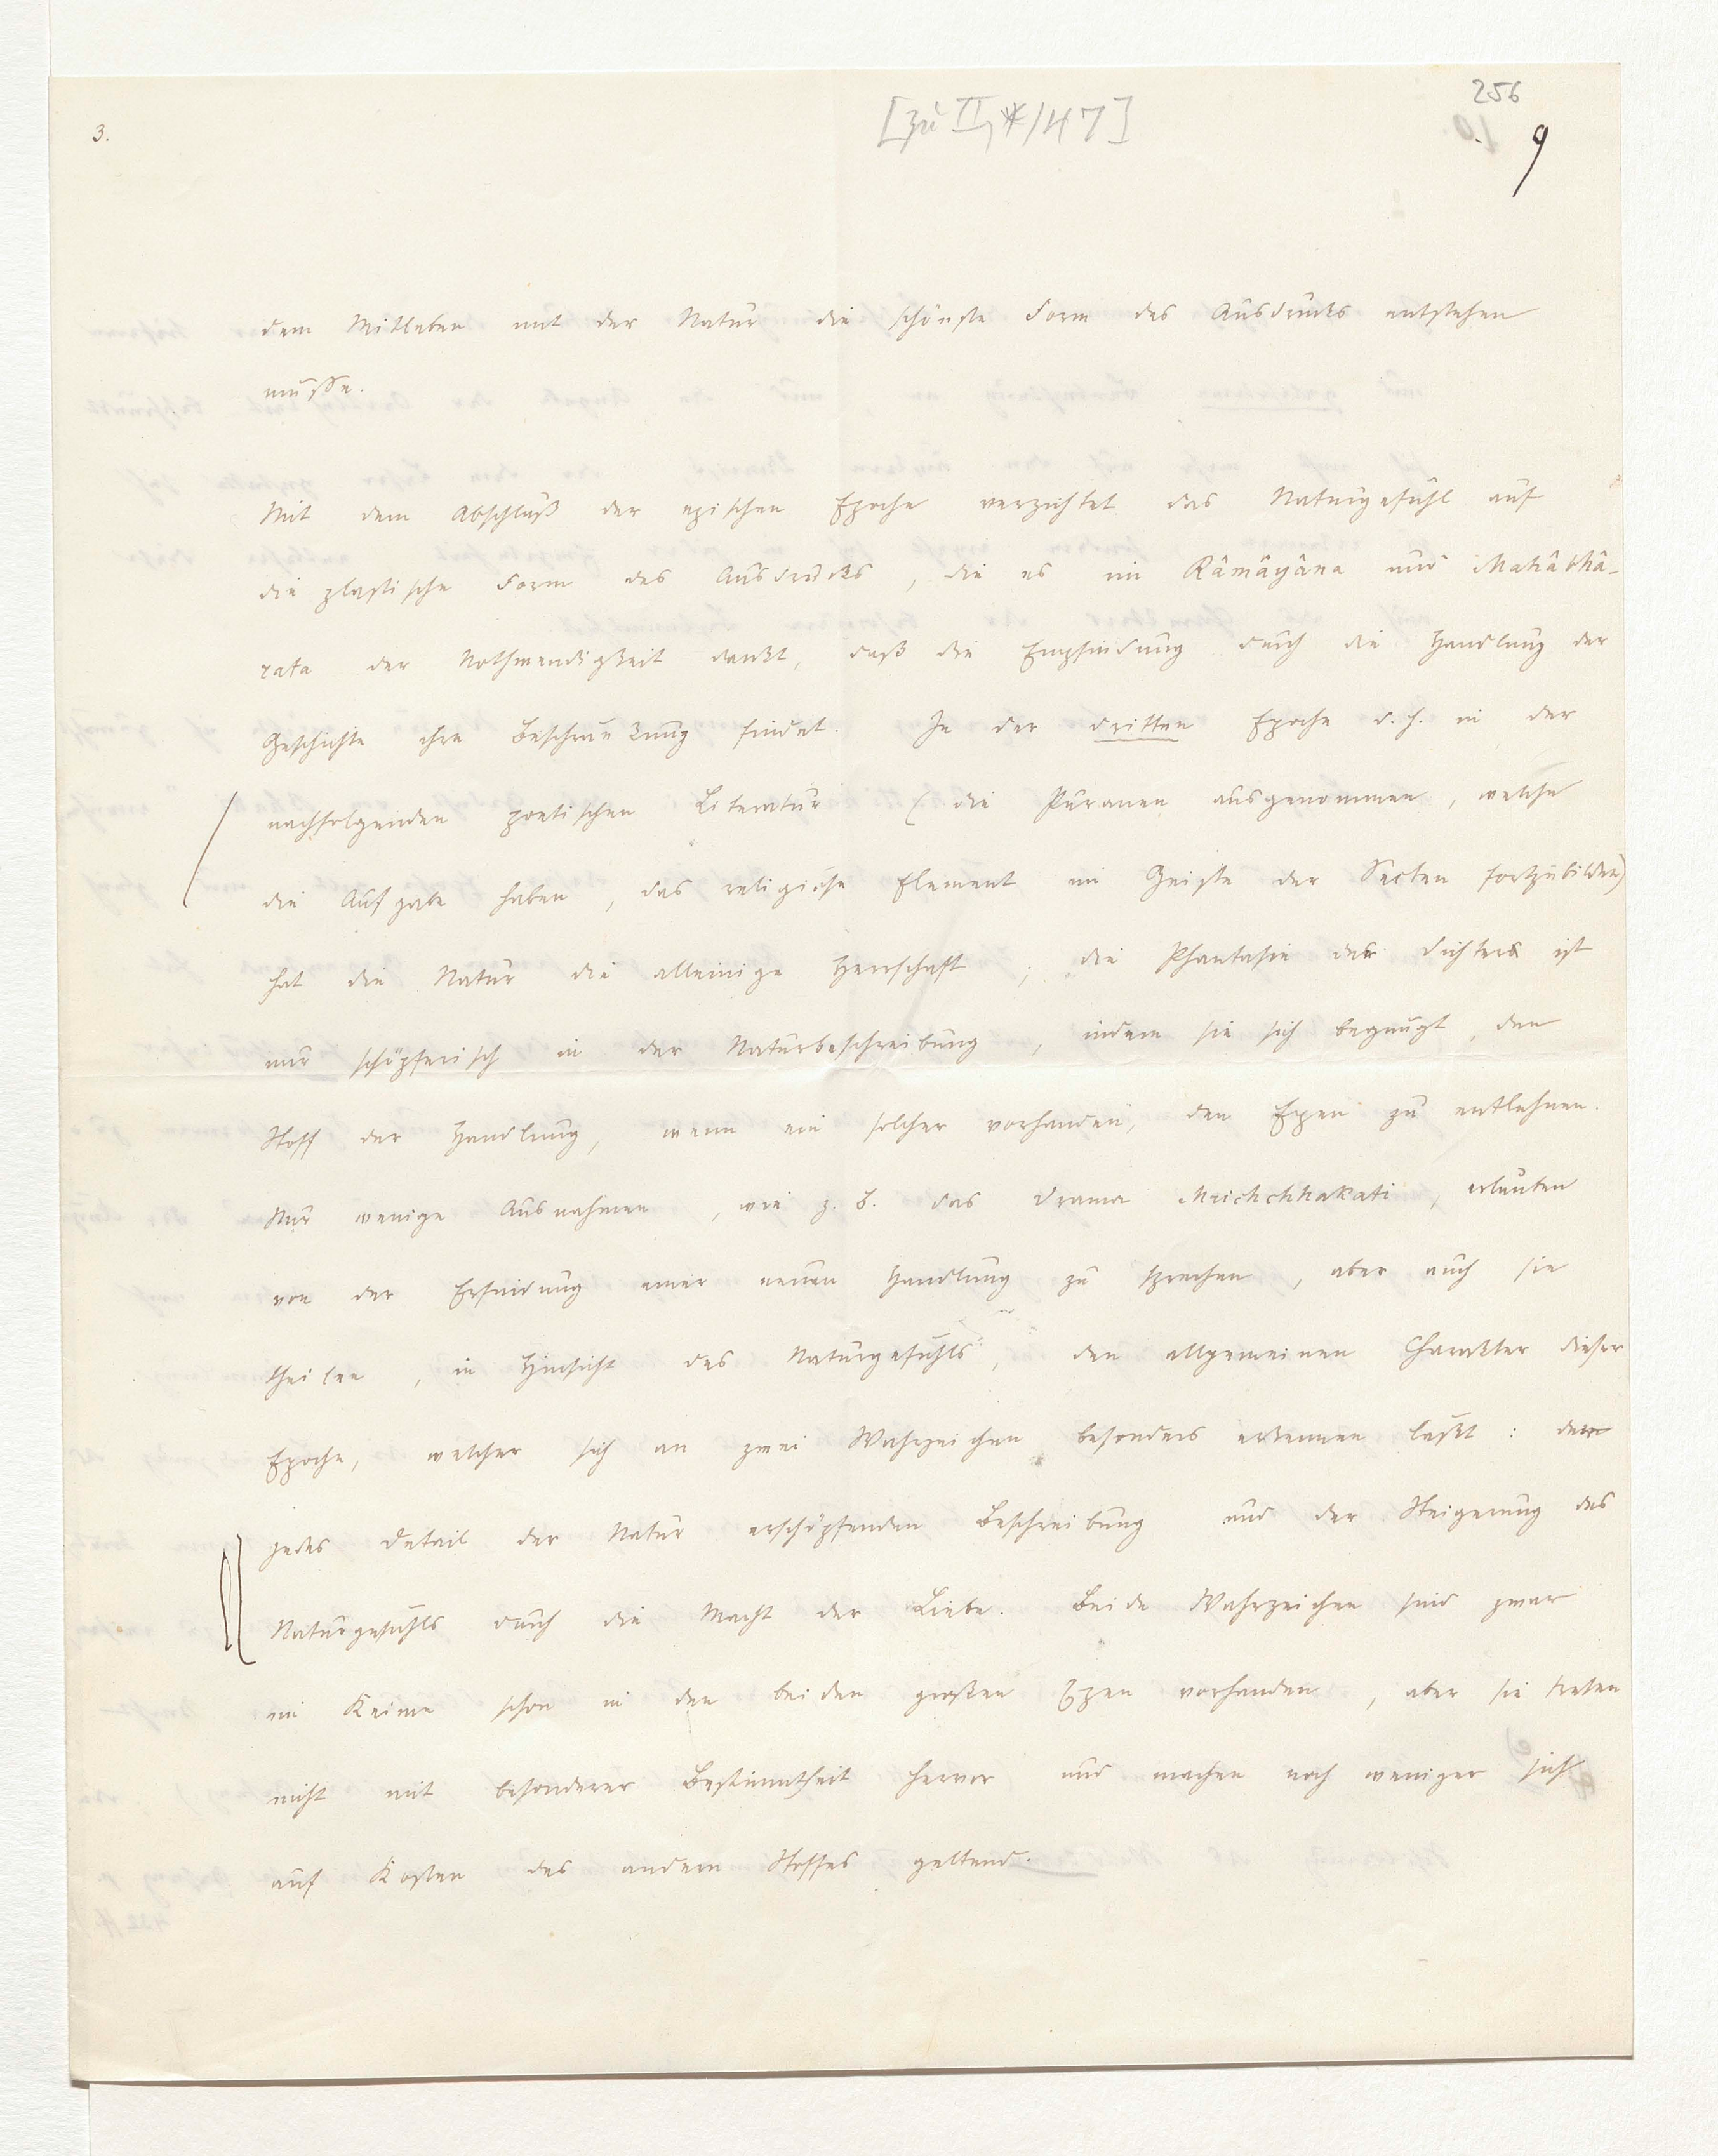 256
[zu II,*/47]
3.
9
dem Mitleben mit der Natur die schönste Form des Ausdrucks entstehen
müsse.
Mit dem Abschluß der epischen Epoche verzichtet das Naturgefühl auf
die plastische Form des Ausdrucks, die es im Râmâyâna und Mahâbhâ-
rata der Nothwendigkeit dankt, daß die Empfindung durch die Handlung der
Geschichte ihre Beschränkung findet. In der dritten Epoche d. h. in der
nachfolgenden poetischen Literatur (die Puranen ausgenommen, welche
die Aufgabe haben, das religiöse Element im Geiste der Secten fortzubilden)
hat die Natur die alleinige Herrschaft; die Phantasie der Dichter ist
nur schöpferisch in der Naturbeschreibung, indem sie sich begnügt, den
Stoff der Handlung, wenn ein solcher vorhanden, den Epen zu entlehnen.
Nur wenige Ausnahmen, wie z. B. das Drama Mrichchhakati, erlauben
von der Erfindung einer neuen Handlung zu sprechen, aber auch sie
theilen, in Hinsicht des Naturgefühls, den allgemeinen Charakter dieser
Epoche, welcher sich an zwei Wahrzeichen besonders erkennen läßt: der
jedes Detail der Natur erschöpfenden Beschreibung und der Steigerung des
Naturgefühls durch die Macht der Liebe. Beide Wahrzeichen sind zwar
im Keime schon in den beiden großen Epen vorhanden, aber sie treten
nicht mit besonderer Bestimmtheit hervor und machen noch weniger sich
auf Kosten des andern Stoffes geltend.